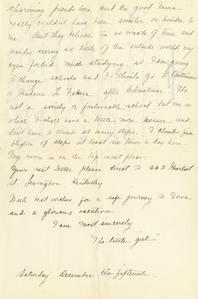 charming friends here and the good nuns
really couldn't have been sweeter or kinder to
me. But they believe in as waste of time and
besides seeing as little of the outside world my
eyes forbid much studying, so I am going
to change schools and I think go to
Madame after Christmas. It's
not a society or fashionable school but one in
which I shall have a little more leisure and
don't have to climb as many steps. I climb five
flights of steps at least six times a day here
My room is on the top most floor.
Your next letter please direct to 222 Market
St. Lexington Kentucky
With best wishes for a safe journey to Iowa
and a glorious vacation
I am most sincerely
"The little girl"
Saturday December the fifteenth.